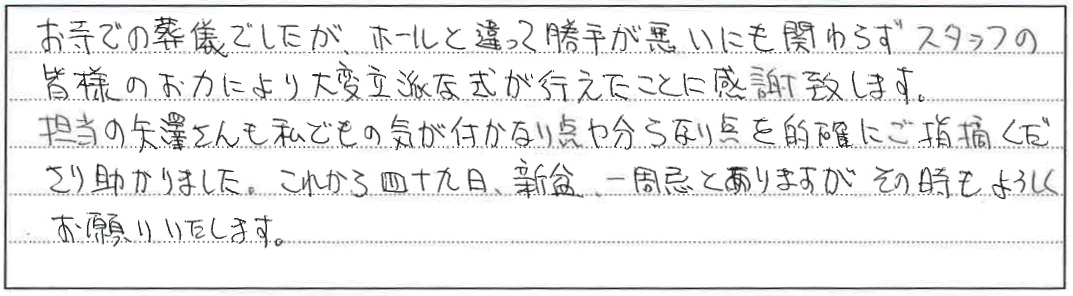 お寺での葬儀でしたが、ホールと違って勝手が悪いにも関わらずスタッフの
皆様のお力により大変立派な式が行えたことに感謝致します。
担当の矢澤さんも私どもの気が付かない点や分らない点を的確にご指摘くだ
さり助かりました。これから四十九日、新盆、一周忌とありますがその時もよろしく
お願いいたします。